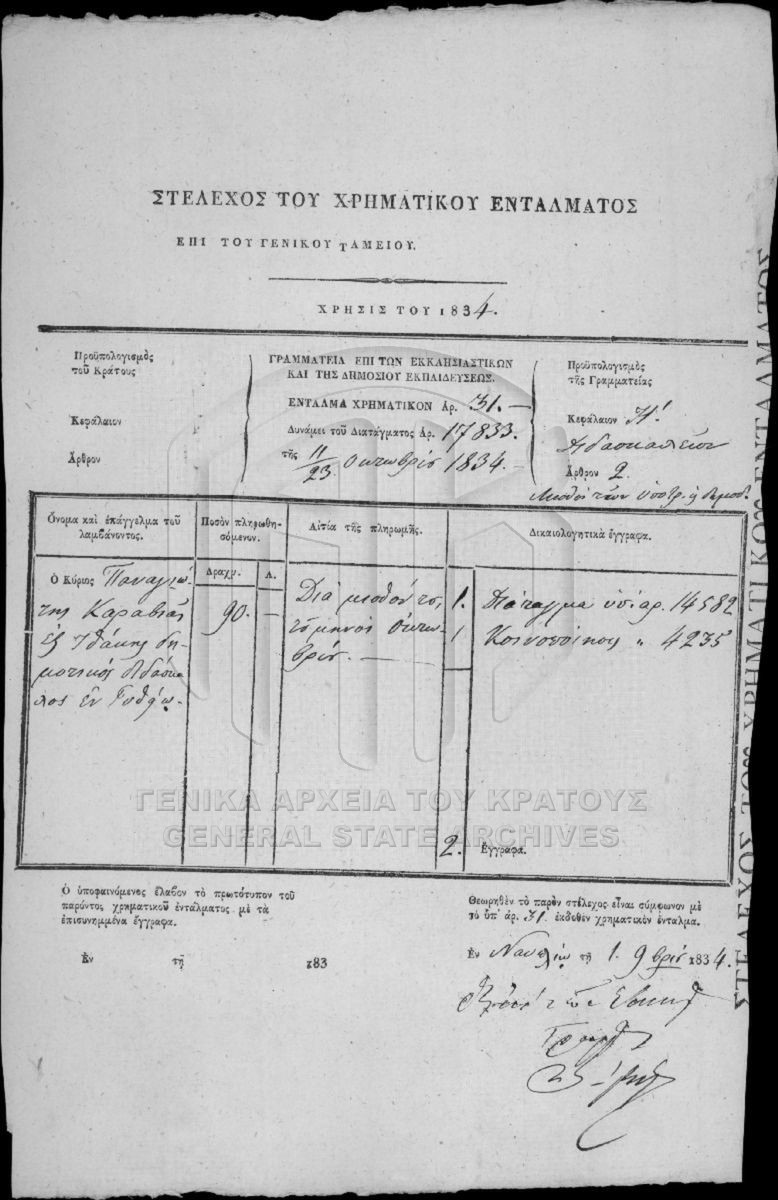 ΣΤΕΛΕΧΟΣ ΤΟΥ ΧΡΗΜΑΤΙΚΟΥ ΕΝΤΑΛΜΑΤΟΣ
ΕΠΙ ΤΟΥ ΓΕΝΙΚΟΥ ΤΑΜΕΙΟΥ.
ΧΡΗΣΙΣ ΤΟΥ 1834.
Προϋπολογισμὸς
τοῦ Κράτους
Κεφάλαιον
Ἄρθρον
ΓΡΑΜΜΑΤΕΙΑ ΕΠΙ ΤΩΝ ΕΚΚΛΗΣΙΑΣΤΙΚΩΝ
ΚΑΙ ΤΗΣ ΔΗΜΟΣΙΟΥ ΕΚΠΑΙΔΕΥΣΕΩΣ.
ΕΝΤΑΛΜΑ ΧΡΗΜΑΤΙΚΟΝ Αρ. 31.—
Δυνάμει τοῦ Διατάγματος Αρ. 17833.
τῆς 11/23 Ὀκτωβρίȣ 1834.—
Προϋπολογισμὸς
τῆς Γραμματείας
Κεφάλαιον Η'.
Διδασκαλεῖον
Ἄρθρον 2.
Μισθοὶ τῶν ὑποτρ. ἢ δημοδ.
Ὄνομα καὶ ἐπάγγελμα τοῦ
λαμβάνοντος.
Ποσὸν πληρωθη-
σόμενον.
Αἰτία τῆς πληρωμῆς.
Δικαιολογητικὰ ἔγγραφα.
Δραχμ. Λ.
Ὁ Κύριος Παναγιώ-
της Καραβίας
ἐξ Ἰθάκης δη-
μοτικὸς διδάσκα-
λος ἐν Γυθείῳ.
90. —
Διὰ μισθόν τȣ
τȣ μηνὸς Ὀκτω-
βρίȣ. —
1. Διάταγμα ὑπ' ἀρ. 14582
1 Κοινοποίησις „ 4235
2. Ἔγγραφα.
ΓΕΝΙΚΑ ΑΡΧΕΙΑ ΤΟΥ ΚΡΑΤΟΥΣ
GENERAL STATE ARCHIVES
Ὁ ὑποφαινόμενος ἔλαβον τὸ πρωτότυπον τοῦ
παρόντος χρηματικοῦ ἐντάλματος μὲ τὰ
ἐπισυνημμένα ἔγγραφα.
Ἐν τῇ 183
Θεωρηθὲν τὸ παρὸν στέλεχος εἶναι σύμφωνον μὲ
τὸ ὑπ' ἀρ. 31. ἐκδοθὲν χρηματικὸν ἔνταλμα.
Ἐν Ναυπλίῳ τῇ 1. 9βρίȣ 1834.
ΣΤΕΛΕΧΟΣ ΤΟΥ ΧΡΗΜΑΤΙΚΟΥ ΕΝΤΑΛΜΑΤΟΣ